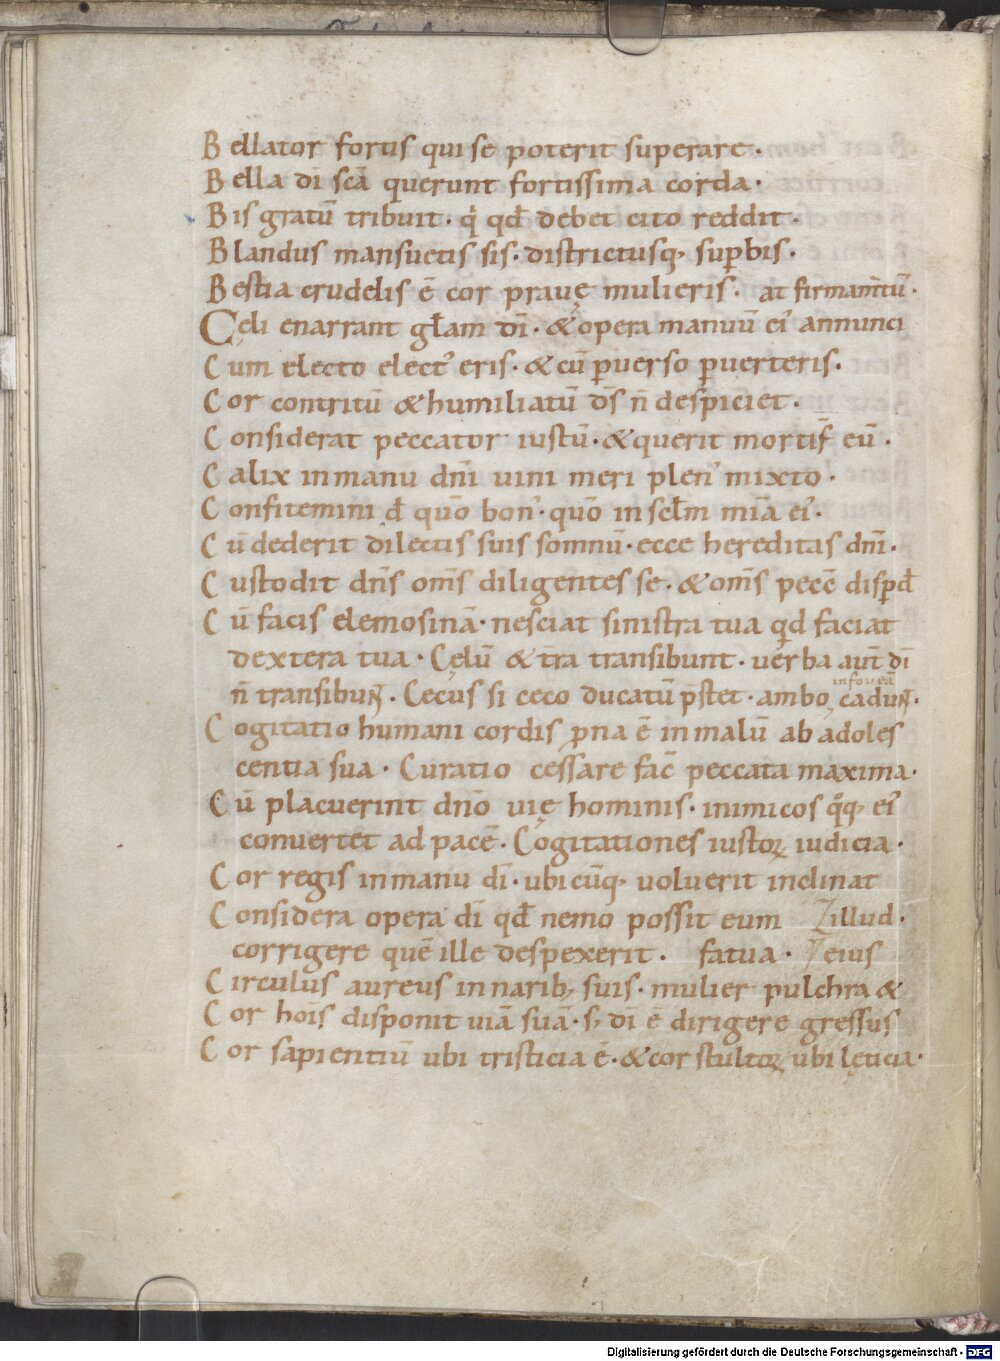 Bellator fortis qui se poterit superare.
Bella dī sc̄a querunt fortissima corda.
Bis gratū tribuit· q̇ qđ debet cito reddit·
Blandus mansuetis sis· districtusq; suꝑbis·
Bestia crudelis ē cor prauę mulieris· at firmam̄tū·
Cęli enarrant gła̅m dī· & opera manuū ei᾽ annunci
Cum electo elect᾽ eris· & cū ꝑuerso ꝑuerteris·
Cor contritū & humiliatū d̄s n̄ despiciet·
Considerat peccator iustū· & querit mortif̄ eū·
Calix in manu dn̄i uini meri plen᾽ mixto·
Confitemini đ quō bon᾽· quō in sclm̄ mīa ei᾽·
Cū dederit dilectis suis somnū· ecce hereditas dn̄i·
Custodit dn̄s om̄s diligentes se· & om̄s pecc̄ disꝑđ
Cū facis elemosinā· nesciat sinistra tua qid faciat
dextera tua· Cęlū & t̄ra transibunt· uerba aut̄ dī
in foueā
n̄ transibunt· Cecus si ceco ducatū p̄stet· ambo cadunt·
Cogitatio humani cordis prna ē in malū ab adoles
centia sua· Curatio cessare fac̄ peccata maxima·
Cū placuerint dn̄o uię hominis· inimicos qͦq; ei᾽
conuertet ad pacē· Cogitationes iustoꝝ iudicia·
Cor regis in manu dī· ubicūq; uoluerit inclinat
Considera opera dī qđ nemo possit eum illud·
corrigere quē ille despexerit· fatua· eius
Circulus aureus in narib; suis· mulier pulchra &
Cor hoīs disponit uiā suā· s; dī ē dirigere gressus
Cor sapientiū ubi tristicia ē· & cor stultoꝝ ubi lęticia·
Digitalisierung gefördert durch die Deutsche Forschungsgemeinschaft - DFG